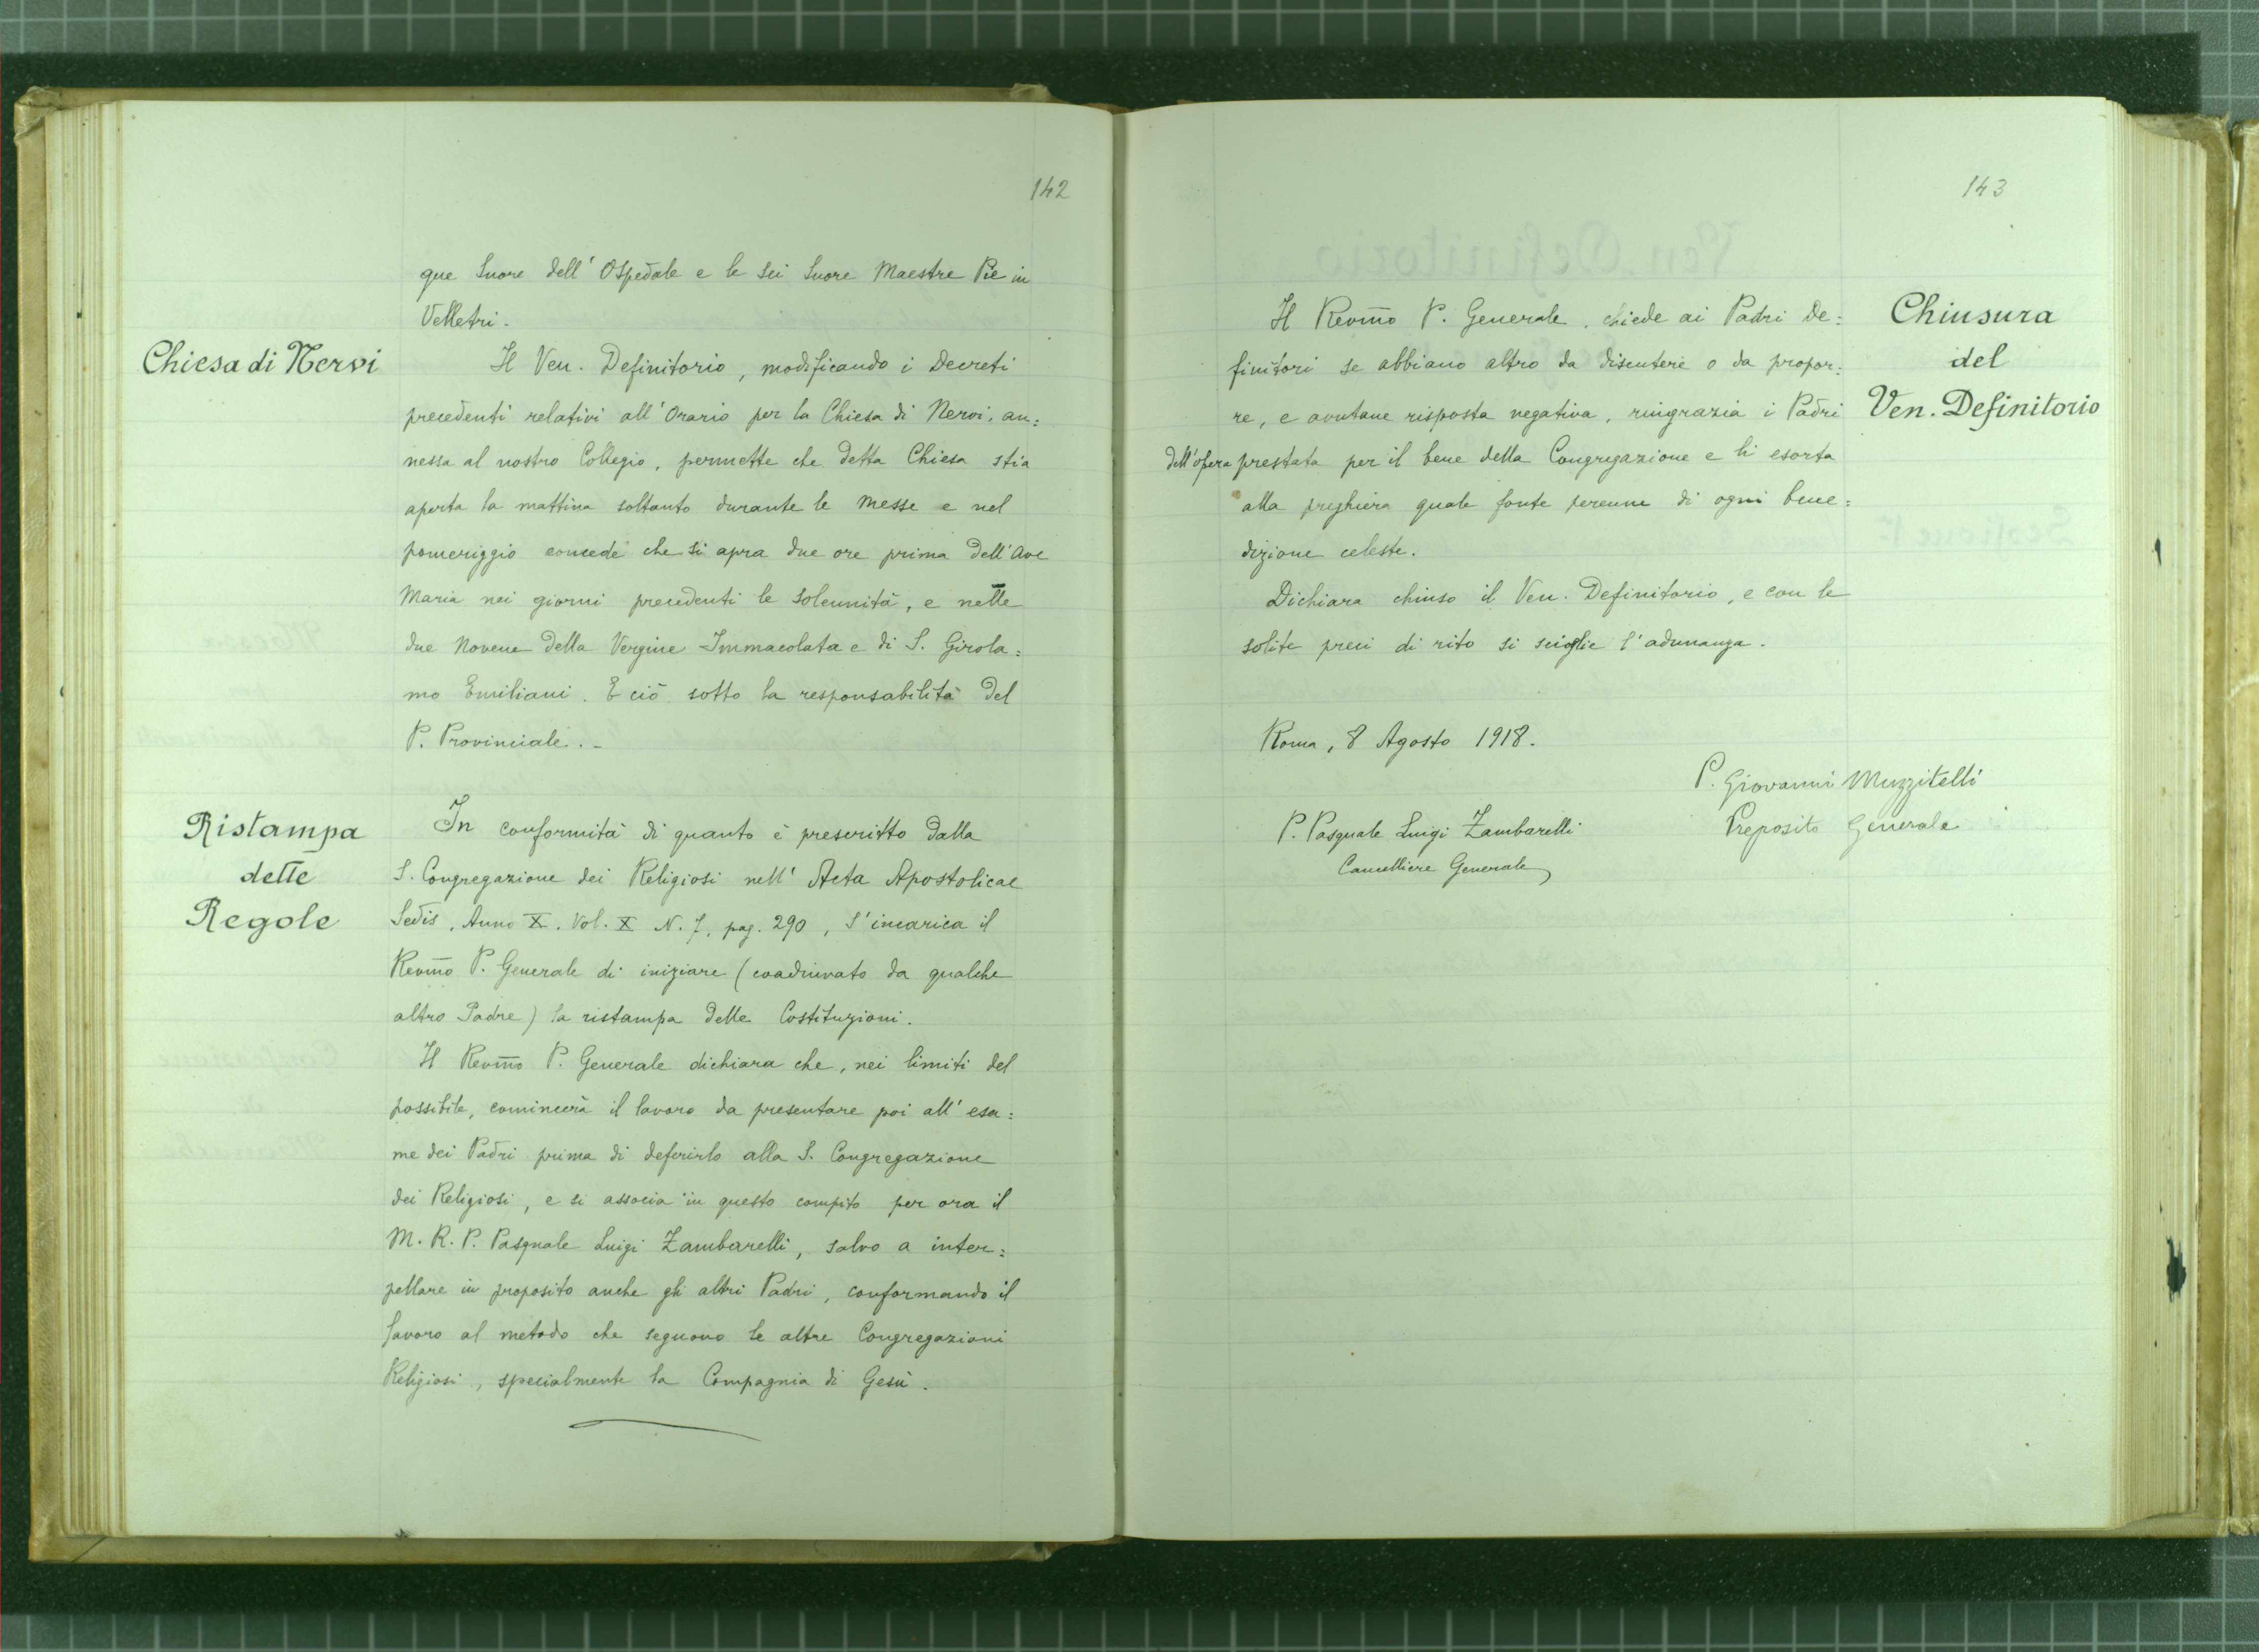 142
que Suore dell' Ospedale e le sei Suore Maestre Pie in
Velletri.
Chiesa di Nervi
Il Ven. Definitorio, modificando i Decreti
precedenti relativi all'Orario per la Chiesa di Nervi, an=
nessa al nostro Collegio, permette che detta Chiesa stia
aperta la mattina soltanto durante le Messe e nel
pomeriggio concede che si apra due ore prima dell'Ave
Maria nei giorni precedenti le solennità, e nelle
due Novene della Vergine Immacolata e di S. Girola=
mo Emiliani. E ciò sotto la responsabilità del
P. Provinciale. -
Ristampa
delle
Regole
In conformità di quanto è prescritto dalla
S. Congregazione dei Religiosi nell' Acta Apostolicae
Sedis, Anno X. Vol. X N. 7, pag. 290, s'incarica il
Revmo P. Generale di iniziare (coadiuvato da qualche
altro Padre) la ristampa delle Costituzioni.
Il Revmo P. Generale dichiara che, nei limiti del
possibile, comincerà il lavoro da presentare poi all' esa=
me dei Padri prima di deferirlo alla S. Congregazione
dei Religiosi, e si associa in questo compito per ora il
M. R. P. Pasquale Luigi Zambarelli, salvo a inter=
pellare in proposito anche gli altri Padri, conformando il
lavoro al metodo che seguono le altre Congregazioni
Religiosi, specialmente la Compagnia di Gesù.
143
Chiusura
del
Ven. Definitorio
Il Revmo P. Generale, chiede ai Padri De=
finitori se abbiano altro da discutere o da propor=
re, e avutane risposta negativa, ringrazia i Padri
dell'opera prestata per il bene della Congregazione e li esorta
alla preghiera quale fonte perenne di ogni bene=
dizione celeste.
Dichiara chiuso il Ven. Definitorio, e con le
solite preci di rito si scioglie l'adunanza.
Roma, 8 Agosto 1918.
P. Giovanni Muzzitelli
Preposito Generale
P. Pasquale Luigi Zambarelli
Cancelliere Generale